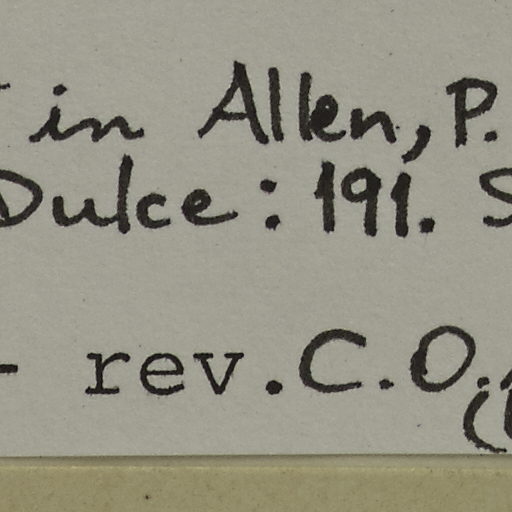 in Allen, P.
Dulce: 191. S
- rev. C.O.